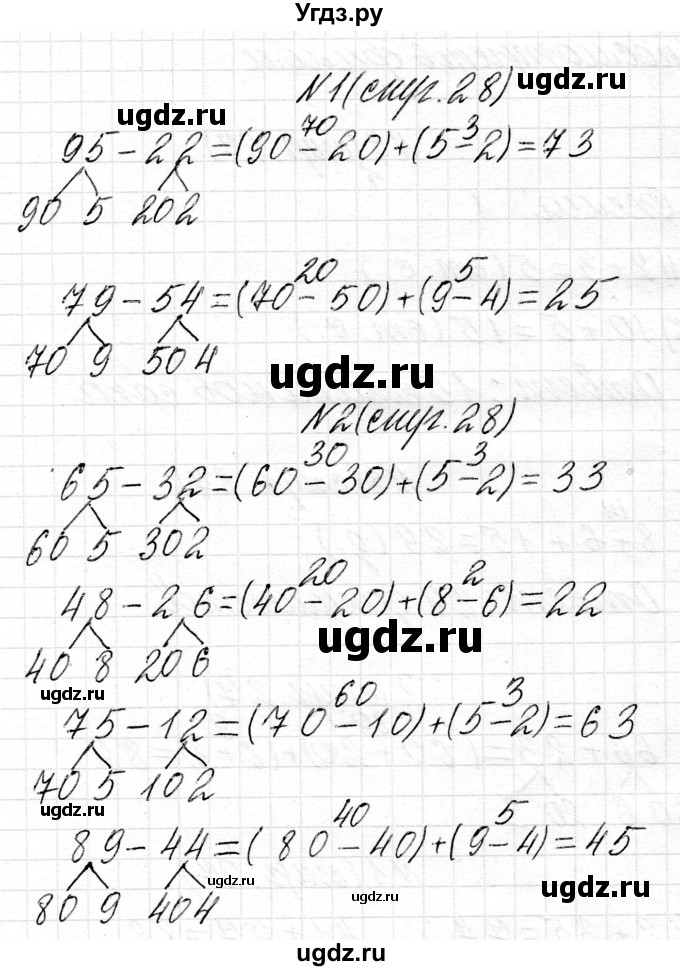 Угдз.ру
N1(стр.28)
ugdz.ru
ugdz.ru
70 3
95-22=(90-20)+(5-2)=73
90 5 20 2
20 5
79-54=(70-50)+(9-4)=25
70 9 50 4
ugdz.ru
ugdz.ru
N2(стр.28)
30 3
65-32=(60-30)+(5-2)=33
60 5 30 2
20 2
48-26=(40-20)+(8-6)=22
ugdz.ru
40 8 20 6
ugdz.ru
60 3
75-12=(70-10)+(5-2)=63
70 5 10 2
ugdz.ru
40 5
89-44=(80-40)+(9-4)=45
ugdz.ru
ugdz.ru
ugdz.ru
80 9 40 4
ugdz.ru